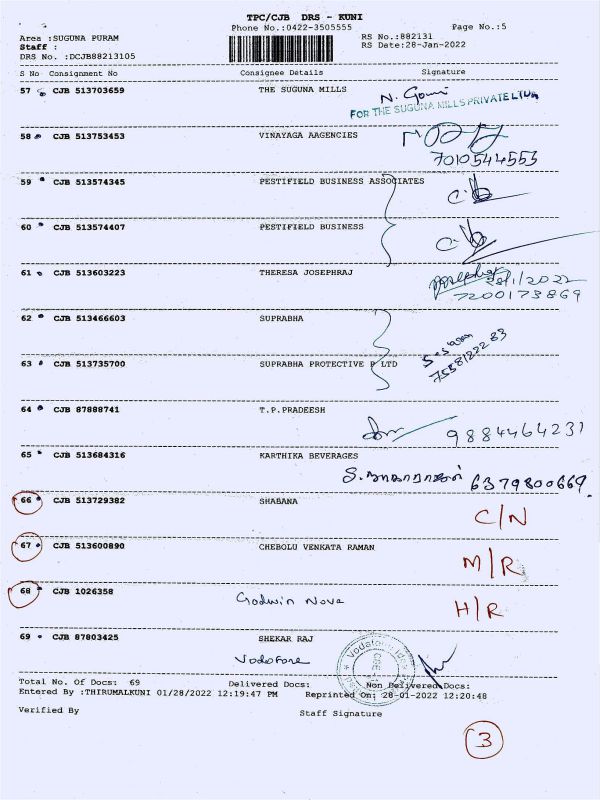 TPC/CJB DRS - KUNI
Phone No.:0422-3505555 Page No.:5
Area :SUGUNA PURAM RS No.:882131
Staff : RS Date:28-Jan-2022
DRS No. :DCJB88213105
S No Consignment No Consignee Details Signature
57 CJB 513703659 THE SUGUNA MILLS N. Gowri
FOR THE SUGUNA MILLS PRIVATE
58 CJB 513753453 VINAYAGA AAGENCIES
7010544553
59 CJB 513574345 PESTIFIELD BUSINESS ASSOCIATES
60 CJB 513574407 PESTIFIELD BUSINESS
61 CJB 513603223 THERESA JOSEPHRAJ 28/1/2022
7200173869
62 CJB 513466603 SUPRABHA
7558122283
63 CJB 513735700 SUPRABHA PROTECTIVE P LTD
64 CJB 87888741 T.P.PRADEESH
9884464231
65 CJB 513684316 KARTHIKA BEVERAGES
6379800669.
66 CJB 513729382 SHABANA
C/N
67 CJB 513600890 CHEBOLU VENKATA RAMAN
M/R
68 CJB 1026358
Godwin Nova H/R
69 CJB 87803425 SHEKAR RAJ
Vodofone
Total No. Of Docs: 69 Delivered Docs: Non Delivered Docs:
Entered By :THIRUMALKUNI 01/28/2022 12:19:47 PM Reprinted On: 28-01-2022 12:20:48
Verified By Staff Signature
3